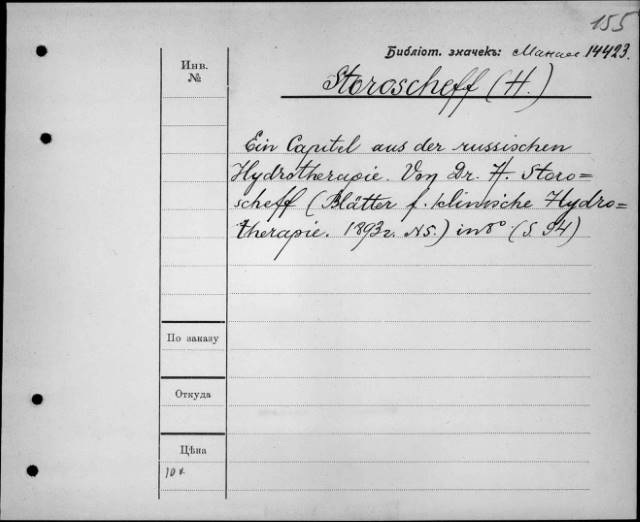 155
Библіот. значекъ: 14423.
Инв.
№
Storoscheff (H.)
Ein Capitel aus der russischen
Hydrotherapie. Von Dr. H. Storo=
scheff (Blätter f. klinische Hydro=
therapie. 1893г. №5.) in 8° (S. 94)
По заказу
Откуда
Цѣна